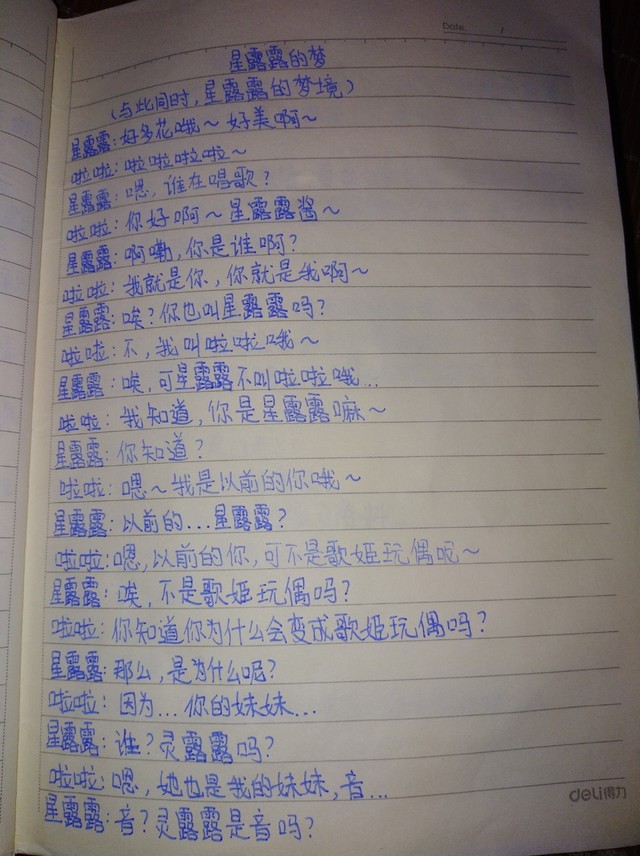 Date. /
星露露的梦
(与此同时,星露露的梦境)
星露露:好多花哦~ 好美啊~
啦啦:啦啦啦啦~
星露露:嗯,谁在唱歌?
啦啦:你好啊~星露露酱~
星露露:啊嘞,你是谁啊?
啦啦:我就是你,你就是我啊~
星露露:唉?你也叫星露露吗?
啦啦:不,我叫啦啦哦~
星露露:唉,可星露露不叫啦啦哦...
啦啦:我知道,你是星露露嘛~
星露露:你知道?
啦啦:嗯~我是以前的你哦~
星露露:以前的...星露露?
啦啦:嗯,以前的你,可不是歌姬玩偶呢~
星露露:唉,不是歌姬玩偶吗?
啦啦:你知道你为什么会变成歌姬玩偶吗?
星露露:那么,是为什么呢?
啦啦:因为...你的妹妹...
星露露:谁?灵露露吗?
啦啦:嗯,她也是我的妹妹,音...
deli得力
星露露:音?灵露露是音吗?